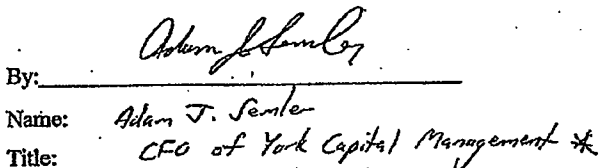 Adam J. Semler
By:
Name: Adam J. Semler
Title: CFO of York Capital Management *